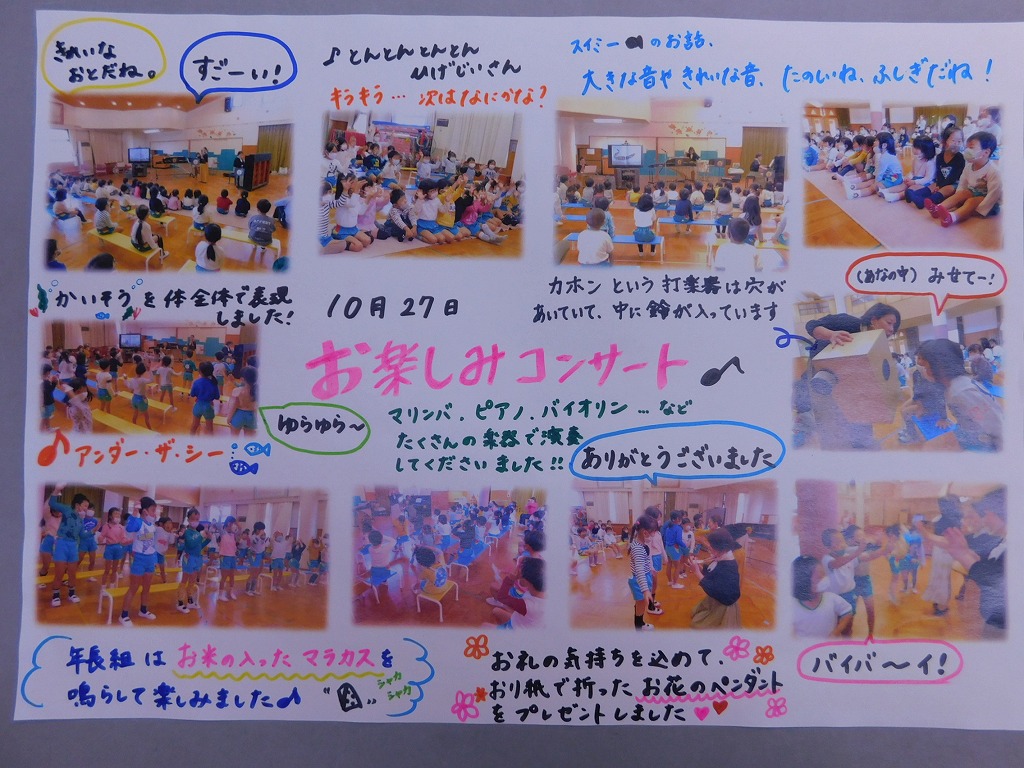 きれいな
おとだね。
すごーい!
♪とんとんとんとん
ひげじいさん
キラキラ… 次はなにかな?
スイミーのお話、
大きな音やきれいな音、たのしいね、ふしぎだね!
"かいそう"を体全体で表現
しました!
10月27日
カホンという打楽器は穴が
あいていて、中に鈴が入っています
(あなの中) みせてー!
お楽しみコンサート♪
マリンバ.ピアノ.バイオリン…など
たくさんの楽器で演奏
してくださいました!!
ゆらゆら〜
♪アンダー・ザ・シー
ありがとうございました
年長組はお米の入ったマラカスを
鳴らして楽しみました♪
シャカ
シャカ
お礼の気持ちを込めて、
おり紙で折ったお花のペンダント
をプレゼントしました
バイバ〜イ!